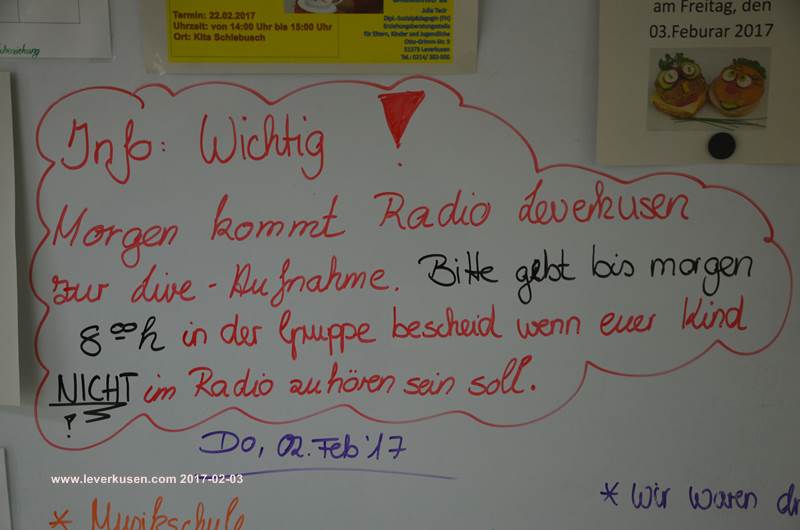 Termin: 22.02.2017
Uhrzeit: von 14:00 Uhr bis 15:00 Uhr
Ort: Kita Schlebusch
Julia Tedr
Dipl.-Sozialpädagogin (FH)
Erziehungsberatungsstelle
für Eltern, Kinder und Jugendliche
Otto-Grimm-Str. 9
51373 Leverkusen
Tel.: 0214/
am Freitag, den
03.Feburar 2017
Info: Wichtig !
Morgen kommt Radio Leverkusen
zur Live-Aufnahme. Bitte gebt bis morgen
8⁰⁰h in der Gruppe bescheid wenn euer Kind
NICHT im Radio zu hören sein soll.
!
Do, 02. Feb '17
www.leverkusen.com 2017-02-03
* Wir waren dr
* Musikschule